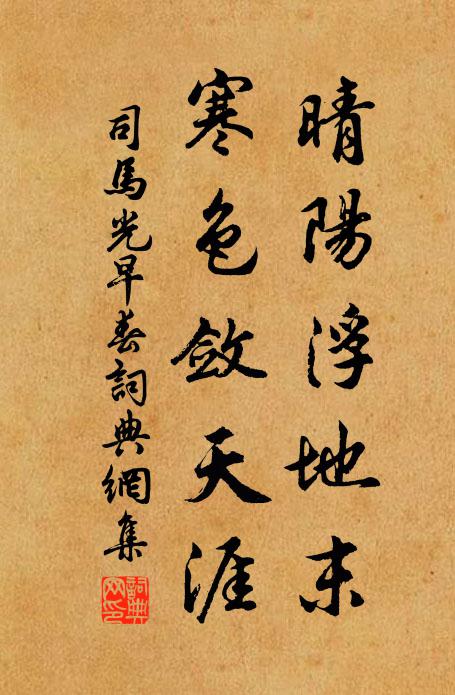 晴陽浮地末
寒色斂天涯
司馬光早春詞典網集
詞典網印